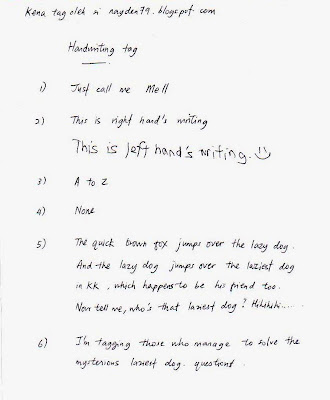 Kena tag oleh si nayden79.blogspot.com
Handwriting tag
1) Just call me Mell
2) This is right hand's writing
This is left hand's writing. :)
3) A to Z
4) None
5) The quick brown fox jumps over the lazy dog.
And the lazy dog jumps over the laziest dog
in KK, which happens to be his friend too.
Now tell me, who's that laziest dog? Hihihihi......
6) I'm tagging those who manage to solve the
mysterious laziest dog question!